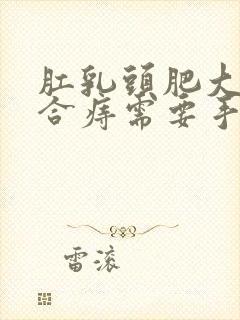 肛乳頭肥大
合痔需要手
雷滚